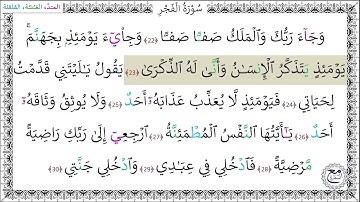 المدّ، الغنّة، القلقلة
سُورَةُ الفَجْرِ
وَجَآءَ رَبُّكَ وَالْمَلَكُ صَفًّا صَفًّا ﴿٢٢﴾ وَجِا۟يٓءَ يَوْمَئِذٍۭ بِجَهَنَّمَۚ
يَوْمَئِذٍ يَتَذَكَّرُ الْإِنسَٰنُ وَأَنَّىٰ لَهُ الذِّكْرَىٰ ﴿٢٣﴾ يَقُولُ يَٰلَيْتَنِي قَدَّمْتُ
لِحَيَاتِي ﴿٢٤﴾ فَيَوْمَئِذٍ لَّا يُعَذِّبُ عَذَابَهُۥٓ أَحَدٌ ﴿٢٥﴾ وَلَا يُوثِقُ وَثَاقَهُۥٓ
أَحَدٌ ﴿٢٦﴾ يَٰٓأَيَّتُهَا النَّفْسُ الْمُطْمَئِنَّةُ ﴿٢٧﴾ ارْجِعِيٓ إِلَىٰ رَبِّكِ رَاضِيَةً
مَّرْضِيَّةً ﴿٢٨﴾ فَادْخُلِي فِي عِبَادِي ﴿٢٩﴾ وَادْخُلِي جَنَّتِي ﴿٣٠﴾